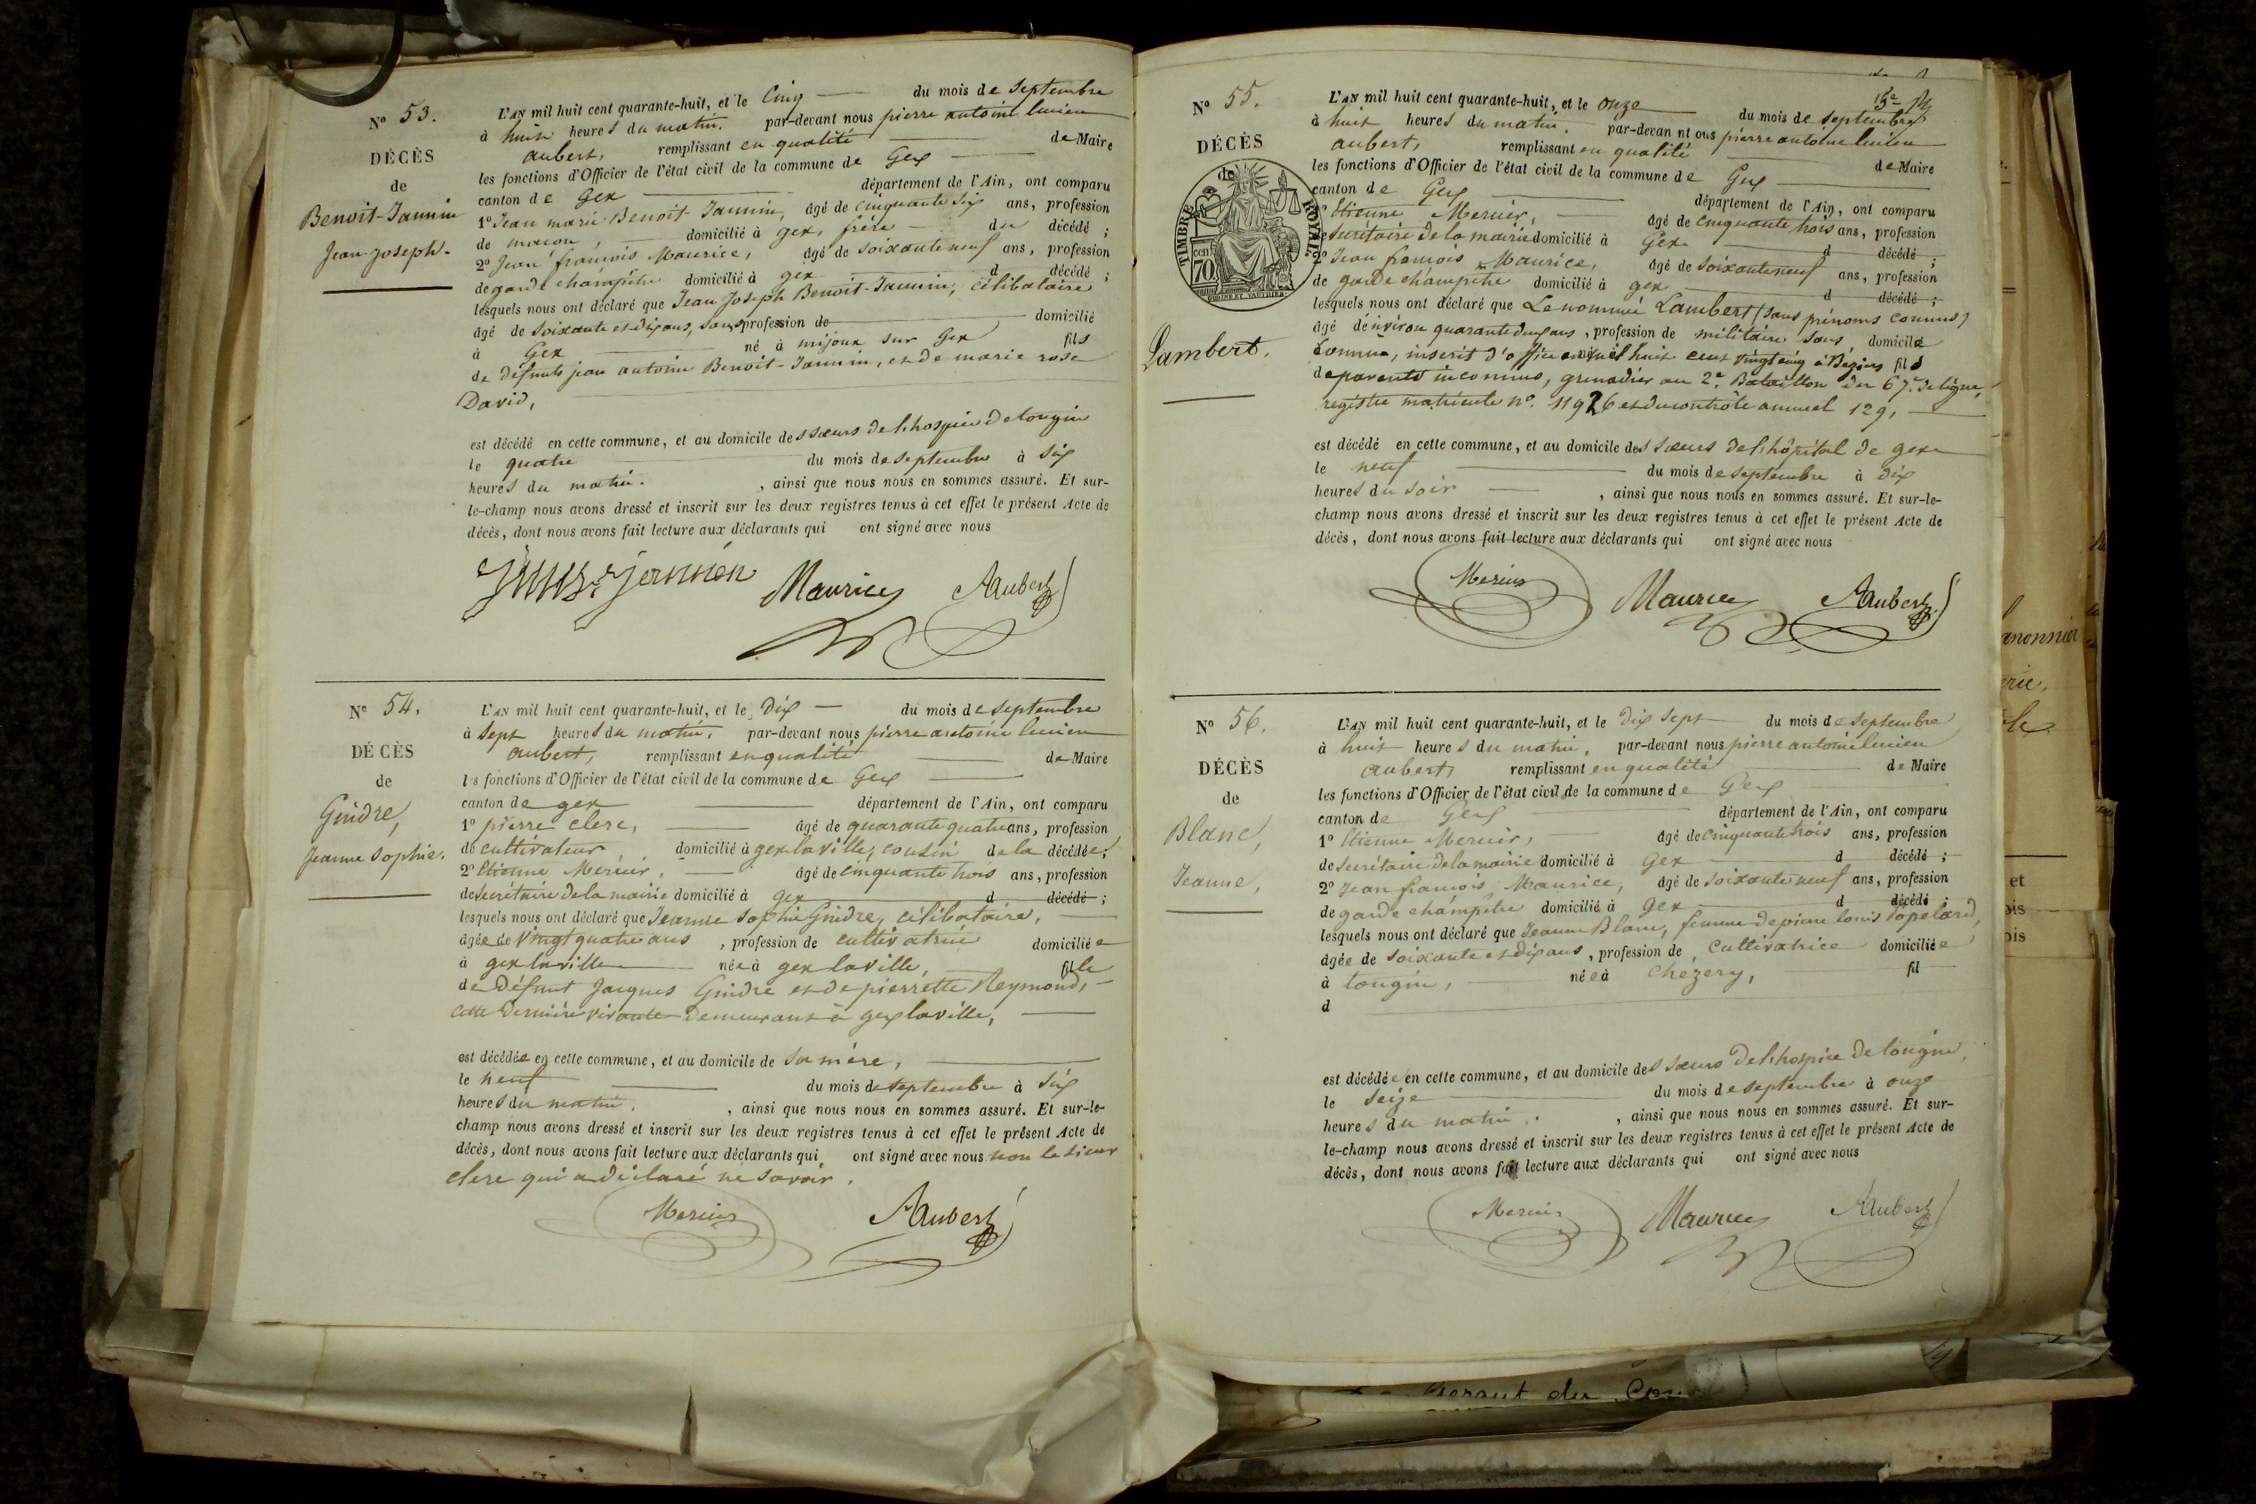 N° 53.
DÉCÈS
de
Benoit-Jannin
Jean Joseph.
L'AN mil huit cent quarante-huit, et le Cinq du mois de Septembre
à huit heures du matin. par-devant nous pierre antoine lucien
aubert, remplissant en qualité de Maire
les fonctions d'Officier de l'état civil de la commune de Gex
canton de Gex département de l'Ain, ont comparu
1° Jean marie Benoit-Jannin, âgé de cinquante six ans, profession
de macon, domicilié à gex, frère du décédé ;
2° Jean françois Maurice, âgé de soixante neuf ans, profession
de garde champêtre domicilié à gex d décédé ;
lesquels nous ont déclaré que Jean Joseph Benoit-Jannin, célibataire
âgé de soixante et dix ans, sans profession de domicilié
à Gex né à mijoux sur Gex fils
de défunts jean antoine Benoit-Jannin, et de marie rose
David,
est décédé en cette commune, et au domicile des sœurs de l'hospice de tougin
le quatre du mois de septembre à Six
heures du matin. , ainsi que nous nous en sommes assuré. Et sur-
le-champ nous avons dressé et inscrit sur les deux registres tenus à cet effet le présent Acte de
décès, dont nous avons fait lecture aux déclarants qui ont signé avec nous
Maurice Aubert
N° 54.
DÉCÈS
de
Gindre,
Jeanne Sophie.
L'AN mil huit cent quarante-huit, et le Dix du mois de septembre
à sept heures du matin, par-devant nous pierre antoine lucien
aubert, remplissant en qualité de Maire
les fonctions d'Officier de l'état civil de la commune de Gex
canton de gex département de l'Ain, ont comparu
1° pierre clerc, âgé de quarante quatre ans, profession
de cultivateur domicilié à gex la ville, cousin de la décédée ;
2° Etienne Mercier, âgé de cinquante trois ans, profession
de secrétaire de la mairie domicilié à gex d décédé ;
lesquels nous ont déclaré que Jeanne Sophie Gindre, célibataire,
âgée de vingt quatre ans , profession de cultivatrice domiciliée
à gex la ville née à gex la ville, fille
de défunt Jacques Gindre et de pierrette Reymond,
cette dernière vivante demeurant à gex la ville,
est décédée en cette commune, et au domicile de sa mère,
le neuf du mois de septembre à Six
heures du matin. , ainsi que nous nous en sommes assuré. Et sur-le-
champ nous avons dressé et inscrit sur les deux registres tenus à cet effet le présent Acte de
décès, dont nous avons fait lecture aux déclarants qui ont signé avec nous non le sieur
clerc qui a déclaré ne savoir.
Mercier Aubert
N° 55.
DÉCÈS
de
TIMBRE ROYAL
70 cen
Lambert.
L'AN mil huit cent quarante-huit, et le onze du mois de septembre
à huit heures du matin. par-devan nt ous pierre antoine lucien
aubert, remplissant en qualité de Maire
les fonctions d'Officier de l'état civil de la commune de Gex
canton de Gex département de l'Ain, ont comparu
Etienne Mercier, âgé de cinquante trois ans, profession
secrétaire de la mairie domicilié à Gex d décédé ;
Jean françois Maurice, âgé de soixante neuf ans, profession
de garde champêtre domicilié à gex d décédé ;
lesquels nous ont déclaré que Le nommé Lambert (sans prénoms connus)
âgé d'environ quarante deux ans, profession de militaire sans domicile
connu, inscrit d'office en mil huit cent vingt cinq à Beziers fils
de parents inconnus, grenadier au 2e. Bataillon du 67e. de ligne,
registre matricule n°. 11926 et du contrôle annuel 129,
est décédé en cette commune, et au domicile des sœurs de l'hôpital de gex
le neuf du mois de septembre à Dix
heures du soir , ainsi que nous nous en sommes assuré. Et sur-le-
champ nous avons dressé et inscrit sur les deux registres tenus à cet effet le présent Acte de
décès, dont nous avons fait lecture aux déclarants qui ont signé avec nous
Mercier Maurice Aubert
N° 56.
DÉCÈS
de
Blanc,
Jeanne,
L'AN mil huit cent quarante-huit, et le Dix sept du mois de septembre
à huit heures du matin, par-devant nous pierre antoine lucien
aubert, remplissant en qualité de Maire
les fonctions d'Officier de l'état civil de la commune de Gex
canton de Gex département de l'Ain, ont comparu
1° Etienne Mercier, âgé de cinquante trois ans, profession
de secrétaire de la mairie domicilié à gex d décédé ;
2° Jean françois Maurice, âgé de soixante neuf ans, profession
de garde champêtre domicilié à gex d décédé ;
lesquels nous ont déclaré que Jeanne Blanc, femme de pierre louis Popelard,
âgée de soixante et dix ans, profession de cultivatrice domiciliée
à tougin, née à Chezery, fil
d
est décédée en cette commune, et au domicile des sœurs de l'hospice de tougin,
le seize du mois de septembre à onze
heures du matin. , ainsi que nous nous en sommes assuré. Et sur-
le-champ nous avons dressé et inscrit sur les deux registres tenus à cet effet le présent Acte de
décès, dont nous avons fait lecture aux déclarants qui ont signé avec nous
Mercier Maurice Aubert